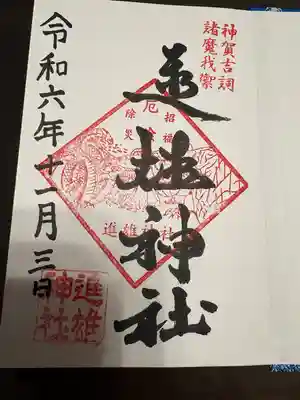 神賀吉詞
諸魔我禦
進雄神社
厄
招福
除災
進雄神社
令和六年十一月三日
進雄
神社